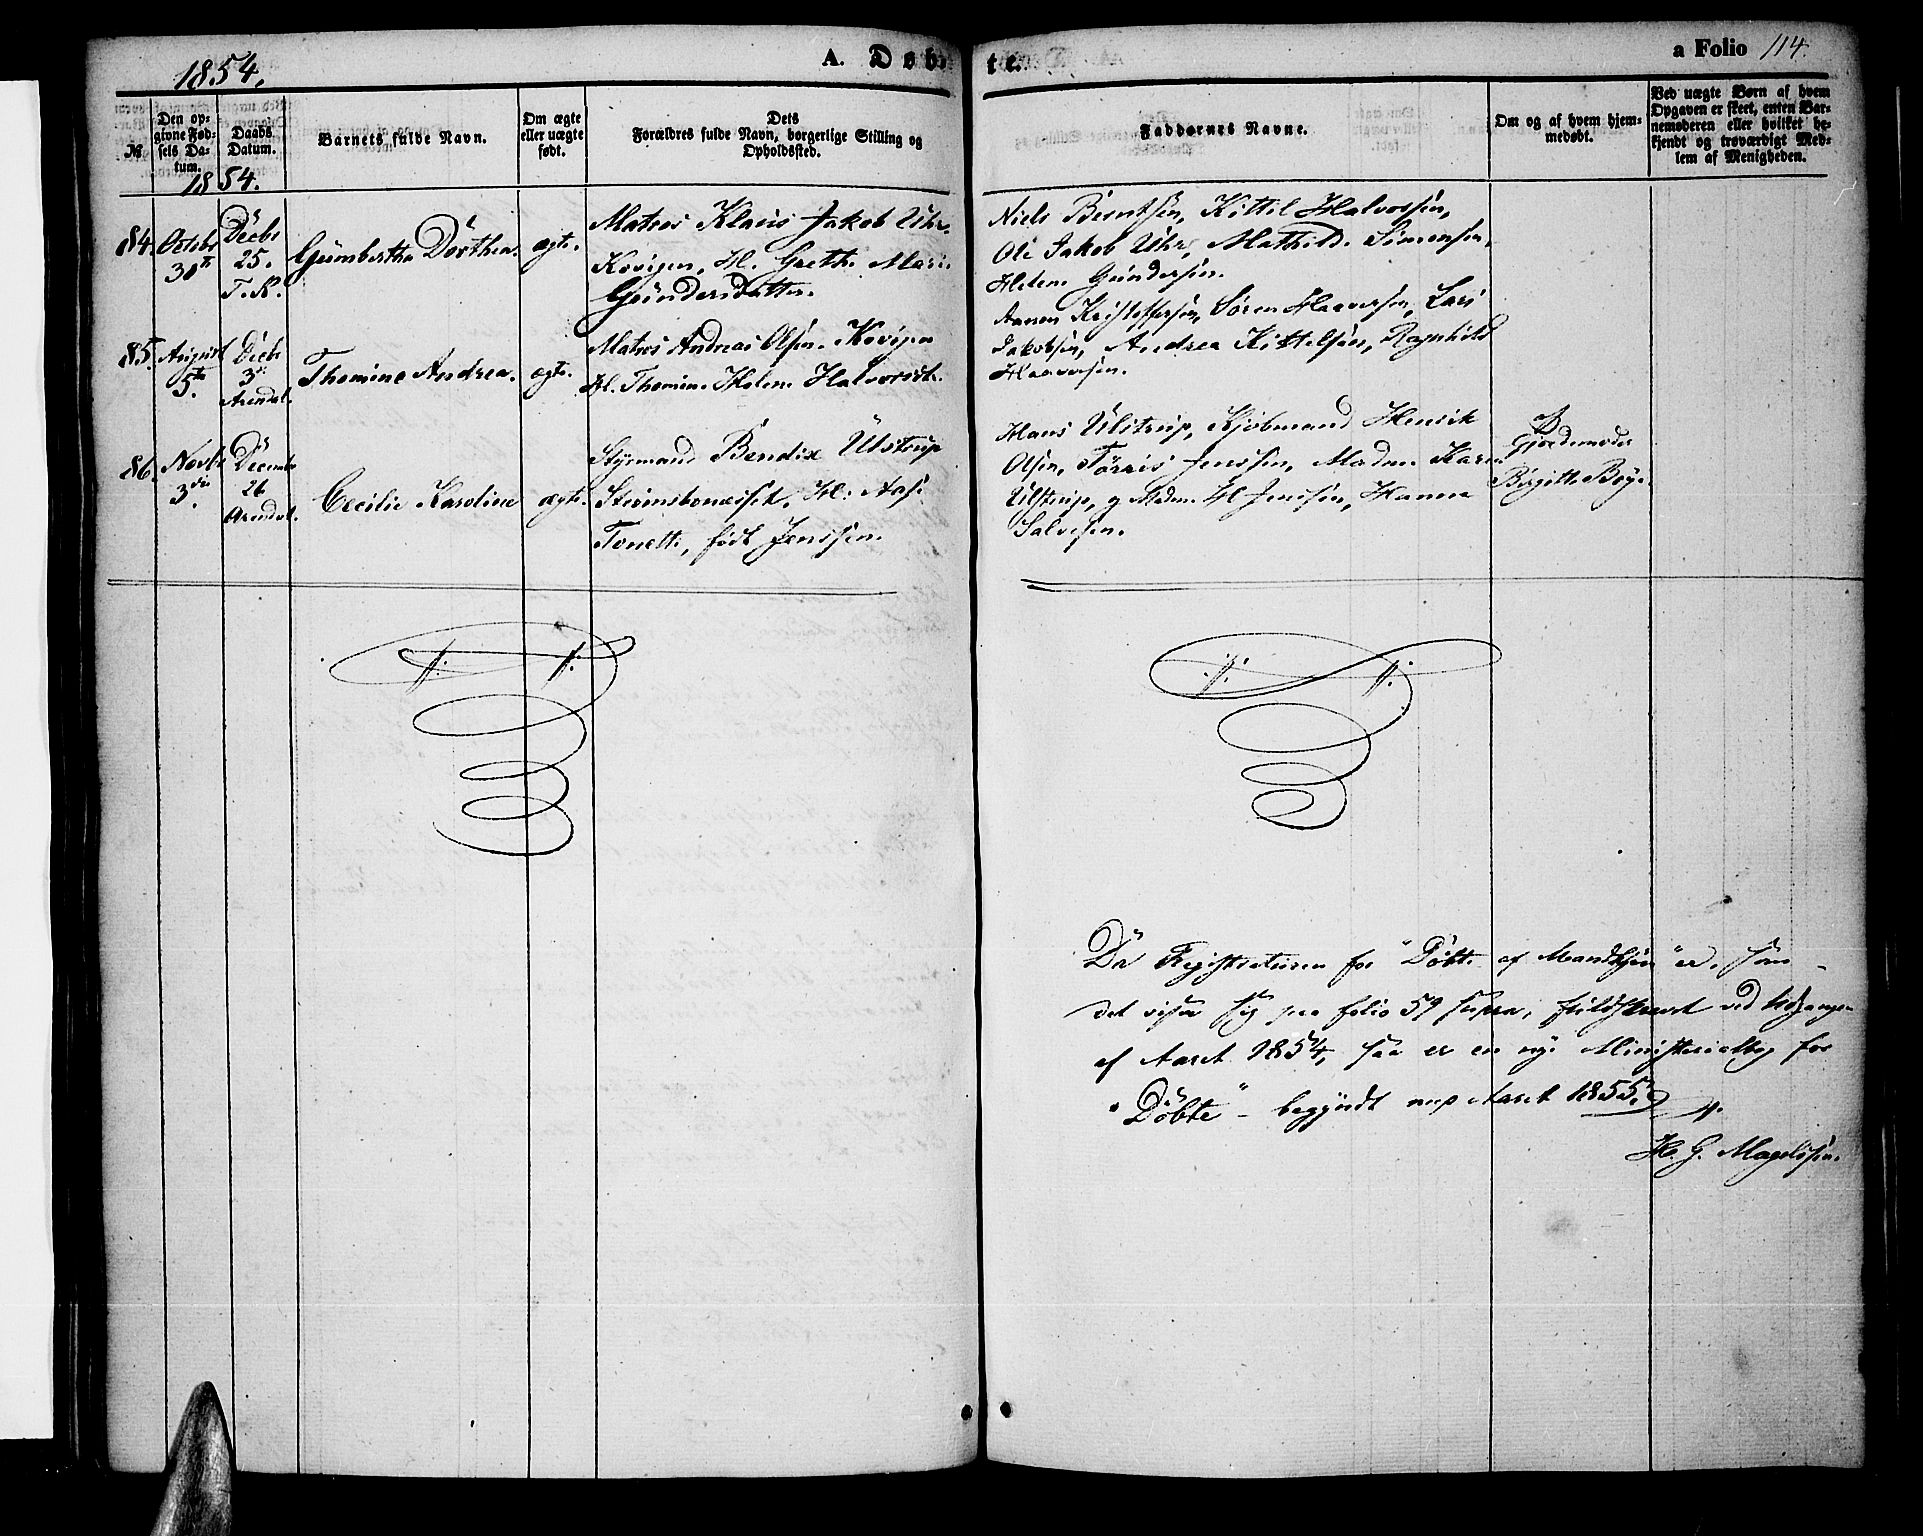 1854.
A. Døb
te.
a Folio 114.
№
Den op-
givne Fød-
sels Da-
tum.
Daabs
Datum.
Barnets fulde Navn.
Om ægte
eller uægte
født.
Dets
Forældres fulde Navn, borgerlige Stilling og
Opholdssted.
Faddernes Navne.
Om og af hvem hjem-
medøbt.
Ved uægte Børn af hvem
Opgaven er skeet, enten Bar-
nemoderen eller hvilket be-
kjendt og troværdigt Med-
lem af Menigheden.
1854.
84.
Octobr
30te
Decbr
25.
T. K.
Gumbertha Dorthea.
ægte.
Matros Klaus Jakob Uhr.
Kovigen, H. Grethe Marie
Gundersdatter.
Niels Berntsen, Kittil Halvorsen,
Ole Jakob Uhr, Mathilde Simonsen,
Helene Gundersen.
85.
August
5te
Decbr
3die
Arendal.
Thomine Andrea.
ægte.
Matros Andreas Olsen. Kovigen
H. Thomine Helene Halvorsdtr.
Aanon Kristoffersen, Søren Haaversen, Lars
Jakobsen, Andrea Kittelsen, Ragnhild
Haaversen.
86.
Novbr
3die
Decembr
26
Arendal.
Cecilie Karoline
ægte.
Styrmand Bendix Ulstrup
H: Aase
Tonette, født Jenssen.
Hans Ulstrup, Kjøbmand Henrik
Olsen, Tørris Jenssen, Madme Karen
Ulstrup, og Madme H Jenssen, Hanna
Salvesen.
Gjordemoder
Birgitte Bøye.
Da Registraturen for "Døbte af Mandkjøn" er, som
det viser sig paa folio 59 supra, fuldskrevet ved Udgangen
af Aaret 1854, saa er en nye Ministerialbog for
"Døbte" - begyndt med Aaret 1855.
H. G. Magelssen.